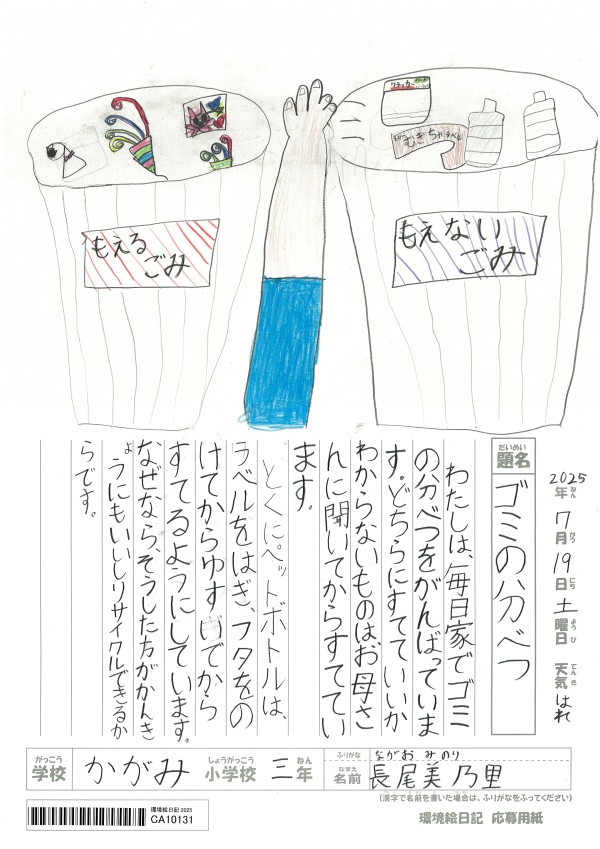 クラッカー
むぎちゃラベル
もえる
ごみ
もえない
ごみ
2025
年 ねん
7
月 がつ
19
日 にち
土
曜日 ようび
天気 てんき
はれ
だいめい
題名
ゴミの分べつ
わたしは、毎日家でゴミ
の分べつをがんばっていま
す。どちらにすてていいか
わからないものは、お母さ
んに聞いてからすててい
ます。
とくにペットボトルは、
ラベルをはぎ、フタをの
けてからゆすいでから
すてるようにしています。
なぜなら、そうした方がかんき
ょうにもいいしリサイクルできるか
らです。
がっこう
学校
かがみ
しょうがっこう
小学校
三
ねん
年
ふりがな
ながお みのり
なまえ
名前
長尾美乃里
(漢字で名前を書いた場合は、ふりがなをふってください)
環境絵日記 2025
CA10131
環境絵日記 応募用紙